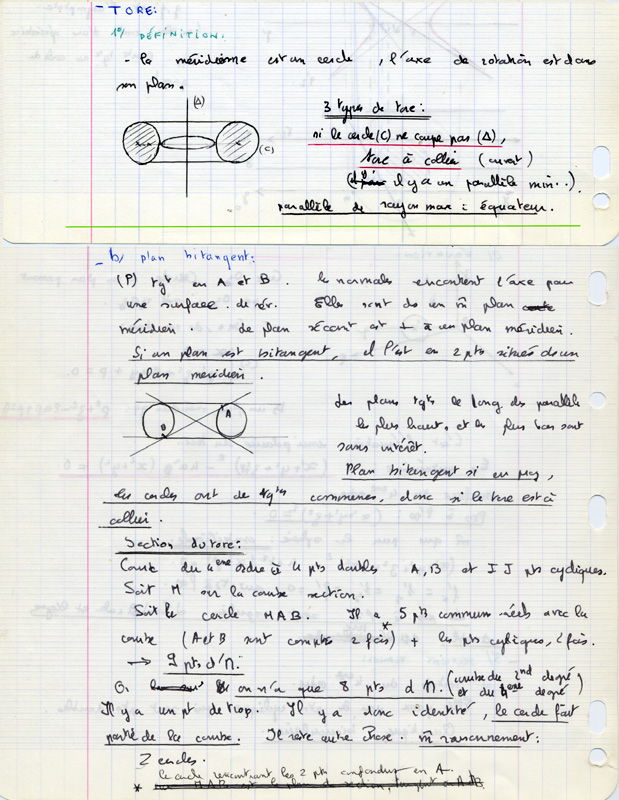 - TORE:
1°/ DÉFINITION.
- la méridienne est un cercle, l'axe de rotation est dans
son plan.
(Δ)
(C)
3 types de tore:
si le cercle (C) ne coupe pas (Δ),
tore à collier (ouvert)
il y a un parallèle min..).
parallèle de rayon max: équateur.
- b/ plan bitangent:
(P) tgt en A et B. les normales rencontrent l'axe pour
une surface de rév. Elles sont ds un m̄ plan
méridien. de plan sécant est ⊥ à un plan méridien.
Si un plan est bitangent, il l'est en 2 pts situés ds un
plan meridien.
A
B
Les plans tgts le long des parallèles
le plus haut, et les plus bas sont
sans intérêt.
Plan bitangent si en
les cercles ont de tgtes communes, donc si le tore est à
collier.
Section du tore:
Courbe du 4ème ordre à 4 pts doubles A, B et I J pts cycliques.
Soit M sur la courbe section.
Soit le cercle MAB. Il a 5 pts communs réels avec la
courbe (A et B sont comptés 2 fois)* + les pts cycliques, 2 fois.
→ 9 pts d'∩.
Or on n'a que 8 pts d'∩. (courbe du 2nd degré
et du 4ème degré)
Il y a un pt de trop. Il y a donc identité, le cercle fait
partie de la courbe. Il reste autre chose. m̄ raisonnement:
2 cercles.
* le cercle rencontrant les 2 pts confondus en A.